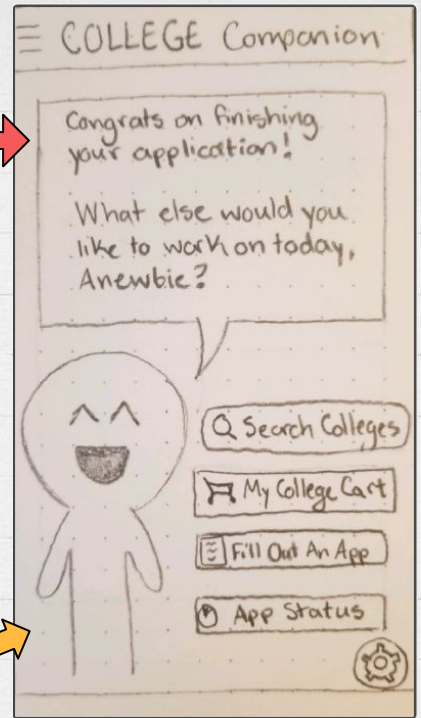 COLLEGE Companion
Congrats on finishing
your application!
What else would you
like to work on today,
Anewbie?
Search Colleges
My College Cart
Fill Out An App
App Status